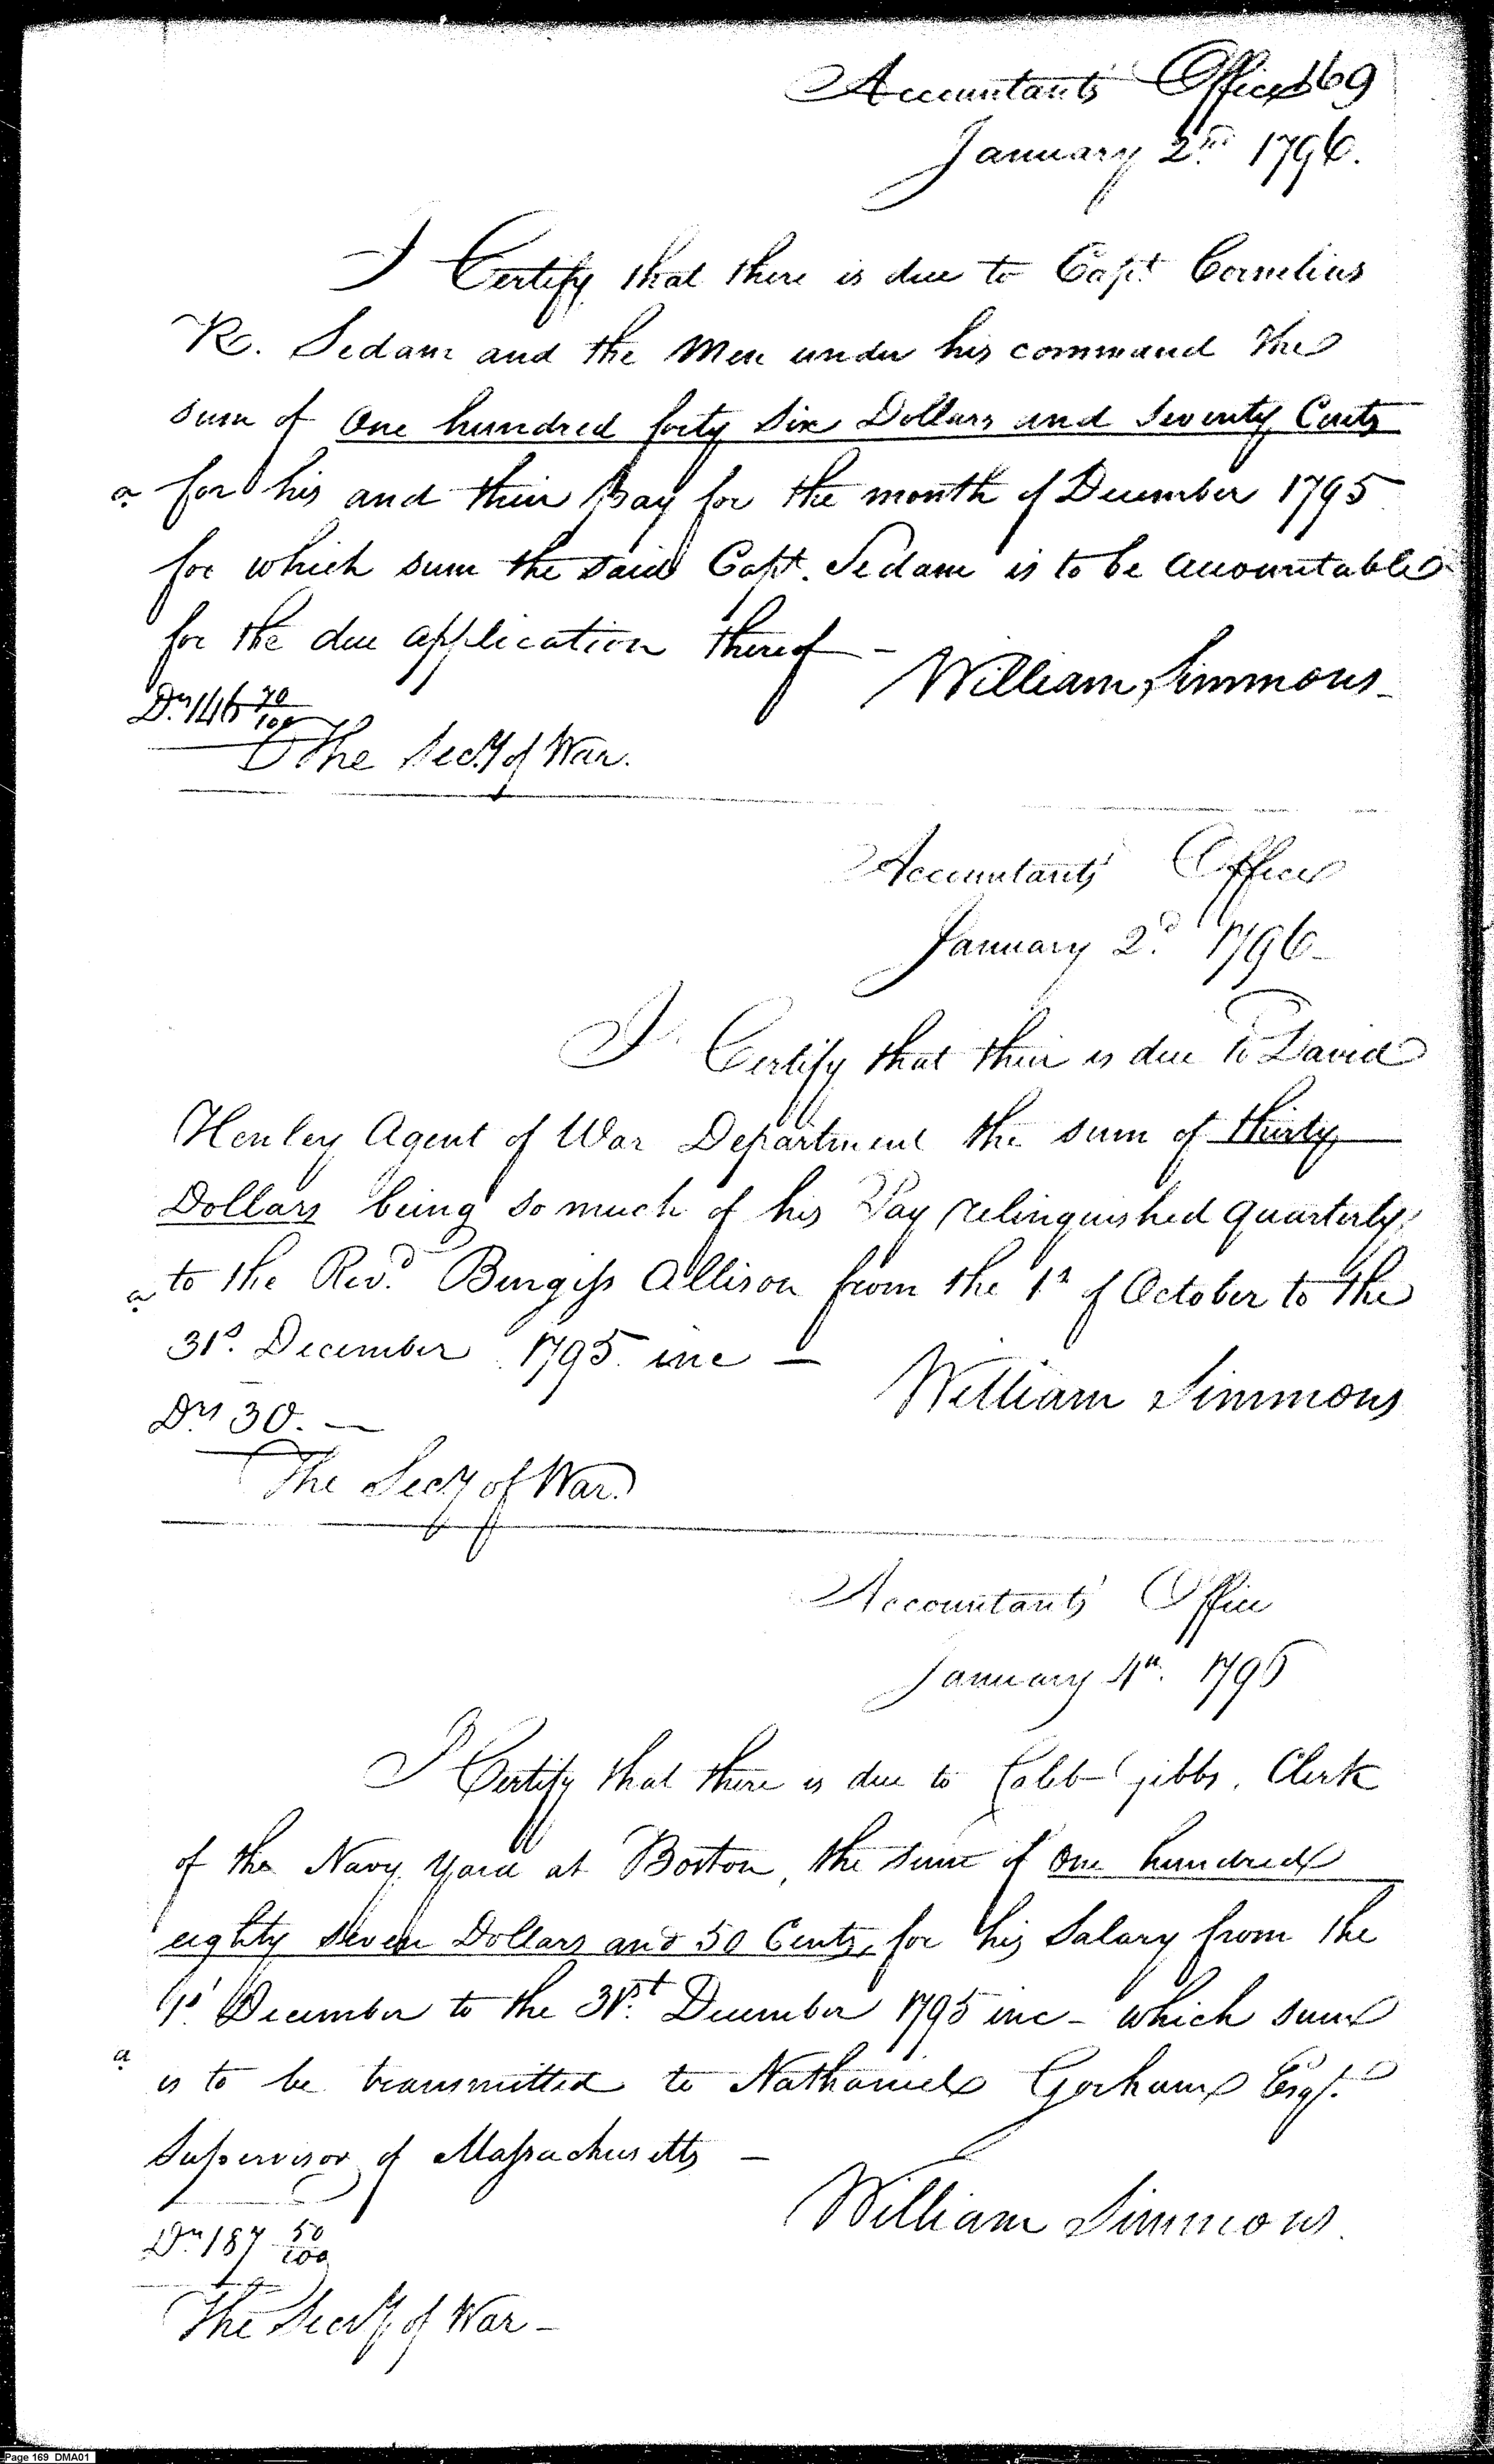 169
Accountants' Office
January 2nd. 1796.
I Certify that there is due to Capt. Cornelius
R. Sedam and the Men under his command the
sum of One hundred forty six Dollars and seventy Cents
a for his and their Pay for the month of December 1795
for which sum the said Capt. Sedam is to be accountable
for the due application thereof -
William Simmons
Drs. 146 70/100
The Secy. of War.
Accountants' Office
January 2d. 1796
I Certify that their is due to David
Henley Agent of War Department the sum of thirty
Dollars being so much of his Pay relinquished quarterly
a to the Revd. Burgiss Allison from the 1st of October to the
31st. December 1795 inc —
William Simmons
Drs 30. —
The Secy of War
Accountants' Office
January 4th. 1796
I Certify that there is due to Caleb Gibbs, Clerk
of the Navy Yard at Boston, the sum of One hundred
eighty seven Dollars and 50 Cents, for his Salary from the
1st. December to the 31st. December 1795 inc - which sum
a is to be transmitted to Nathaniel Gorham Esqr.
Supervisor of Massachusetts —
William Simmons.
Drs. 187 50/100
The Secy. of War -
Page 169 DMA01